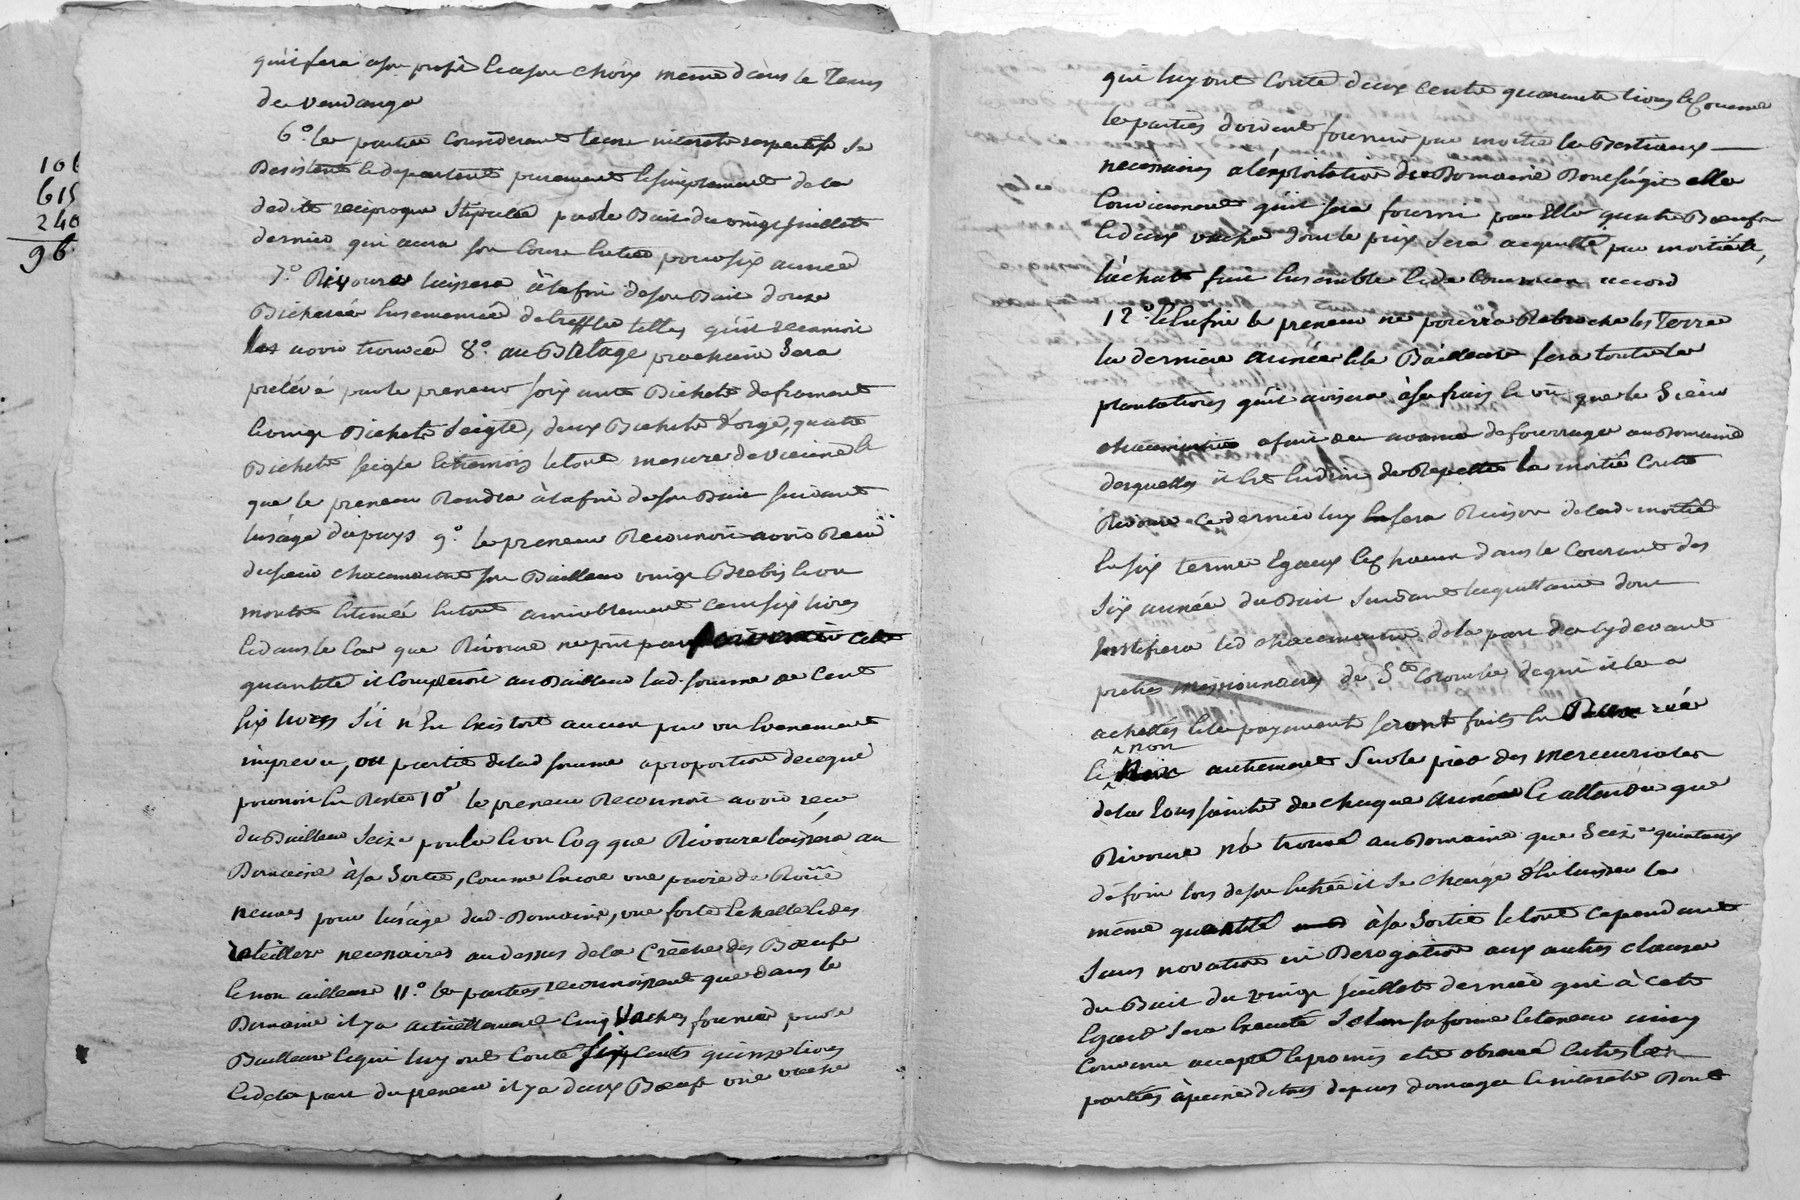 106
615
240
96
qu'il fera a son profit & a son choix meme dans le tems
de vendange
6° les parties considerant leurs interets respectifs se
desistent & departent purement & simplement de la
dedite reciproque stipulée par le Bail du vingt juillet
dernier qui aura son cours entier pour six année
7° Rivoire laissera à la fin de son Bail douze
Bicherée ensemencé de treffle telles qu'il reconnoit
les avoir trouvée 8° au Batage prochain sera
prélevé par le preneur soixante Bichets de froment
& vingt Bichets seigle, deux Bichets d'orge, quatre
Bichets seigle & tremois le tout mesure de vienne &
que le preneur Rendra à la fin de son Bail suivant
l'usage du pays 9° le preneur Reconnoit avoir Recu
du sieur chacementre son Bailleur vingt Brebis & un
mouton estimé le tout amiablement cent six livres
& dans le cas que Rivoire ne put pas cete
quantité il compteroit au Bailleur lad. somme de cent
six livres s'il n'en existoit aucun par un evenement
imprevu, ou partie de lad somme a proportion de ce que
pourroit en Rester 10° le preneur Reconnoit avoir recu
du Bailleur seize poules & un coq que Rivoire laissera au
Domaine à sa sortie, comme encore une paire de Roüe
neuves pour l'usage dud. Domaine, une forte echelle & des
rateliers necessaires au dessus de la crêche des Bœufs
& non ailleurs 11° les parties reconnoissent que dans le
Domaine il y a actuellement cinq vaches fournies par le
Bailleur & qui luy ont couté six cents quinze livres
& de la part du preneur il y a deux Bœufs une vache
qui luy ont couté deux cents quarante livres & comme
les parties doivent fournir par moitié les Bestiaux
necessaires a l'exploitation du Domaine dont s'agit elles
conviennent qu'il sera fourni par elles quatre Bœufs
& deux vaches dont le prix sera acquitté par moitié &
l'achat fait ensemble & de commun accord
12° & enfin le preneur ne pourra Rebroche les terres
la derniere année & le Bailleur fera toutes les
plantations qu'il avisera à ses frais & vu que le sieur
chacementre a fait des avances de fourrages au Domaine
desquelles il est en droit de Repetter la moitié contre
Rivoire ce dernier luy en fera Raison de lad. moitié
en six termes Egaux & chacun dans le courant des
six année du Bail suivant la quittance dont
justifiera led chacementre de la part des cy devant
pretres missionnaires de Ste Colombe de qui il les a
achettés & les payements seront faits en Denrée
& non autrement sur le prix des mercuriales
de la toussaints de chaque année & attendu que
Rivoire n'a trouvé au Domaine que seize quintaux
de foin lors de son entrée il se charge d'en laisser la
même quantité à sa sortie le tout cependant
sans novation ni Derogation aux autres clauses
du Bail du vingt juillet dernier qui à cet
Egard sera executé selon sa forme & teneur ainsy
convenu accepté & promis etre observé entre les
parties à peine de tous depens domages & interets Dont